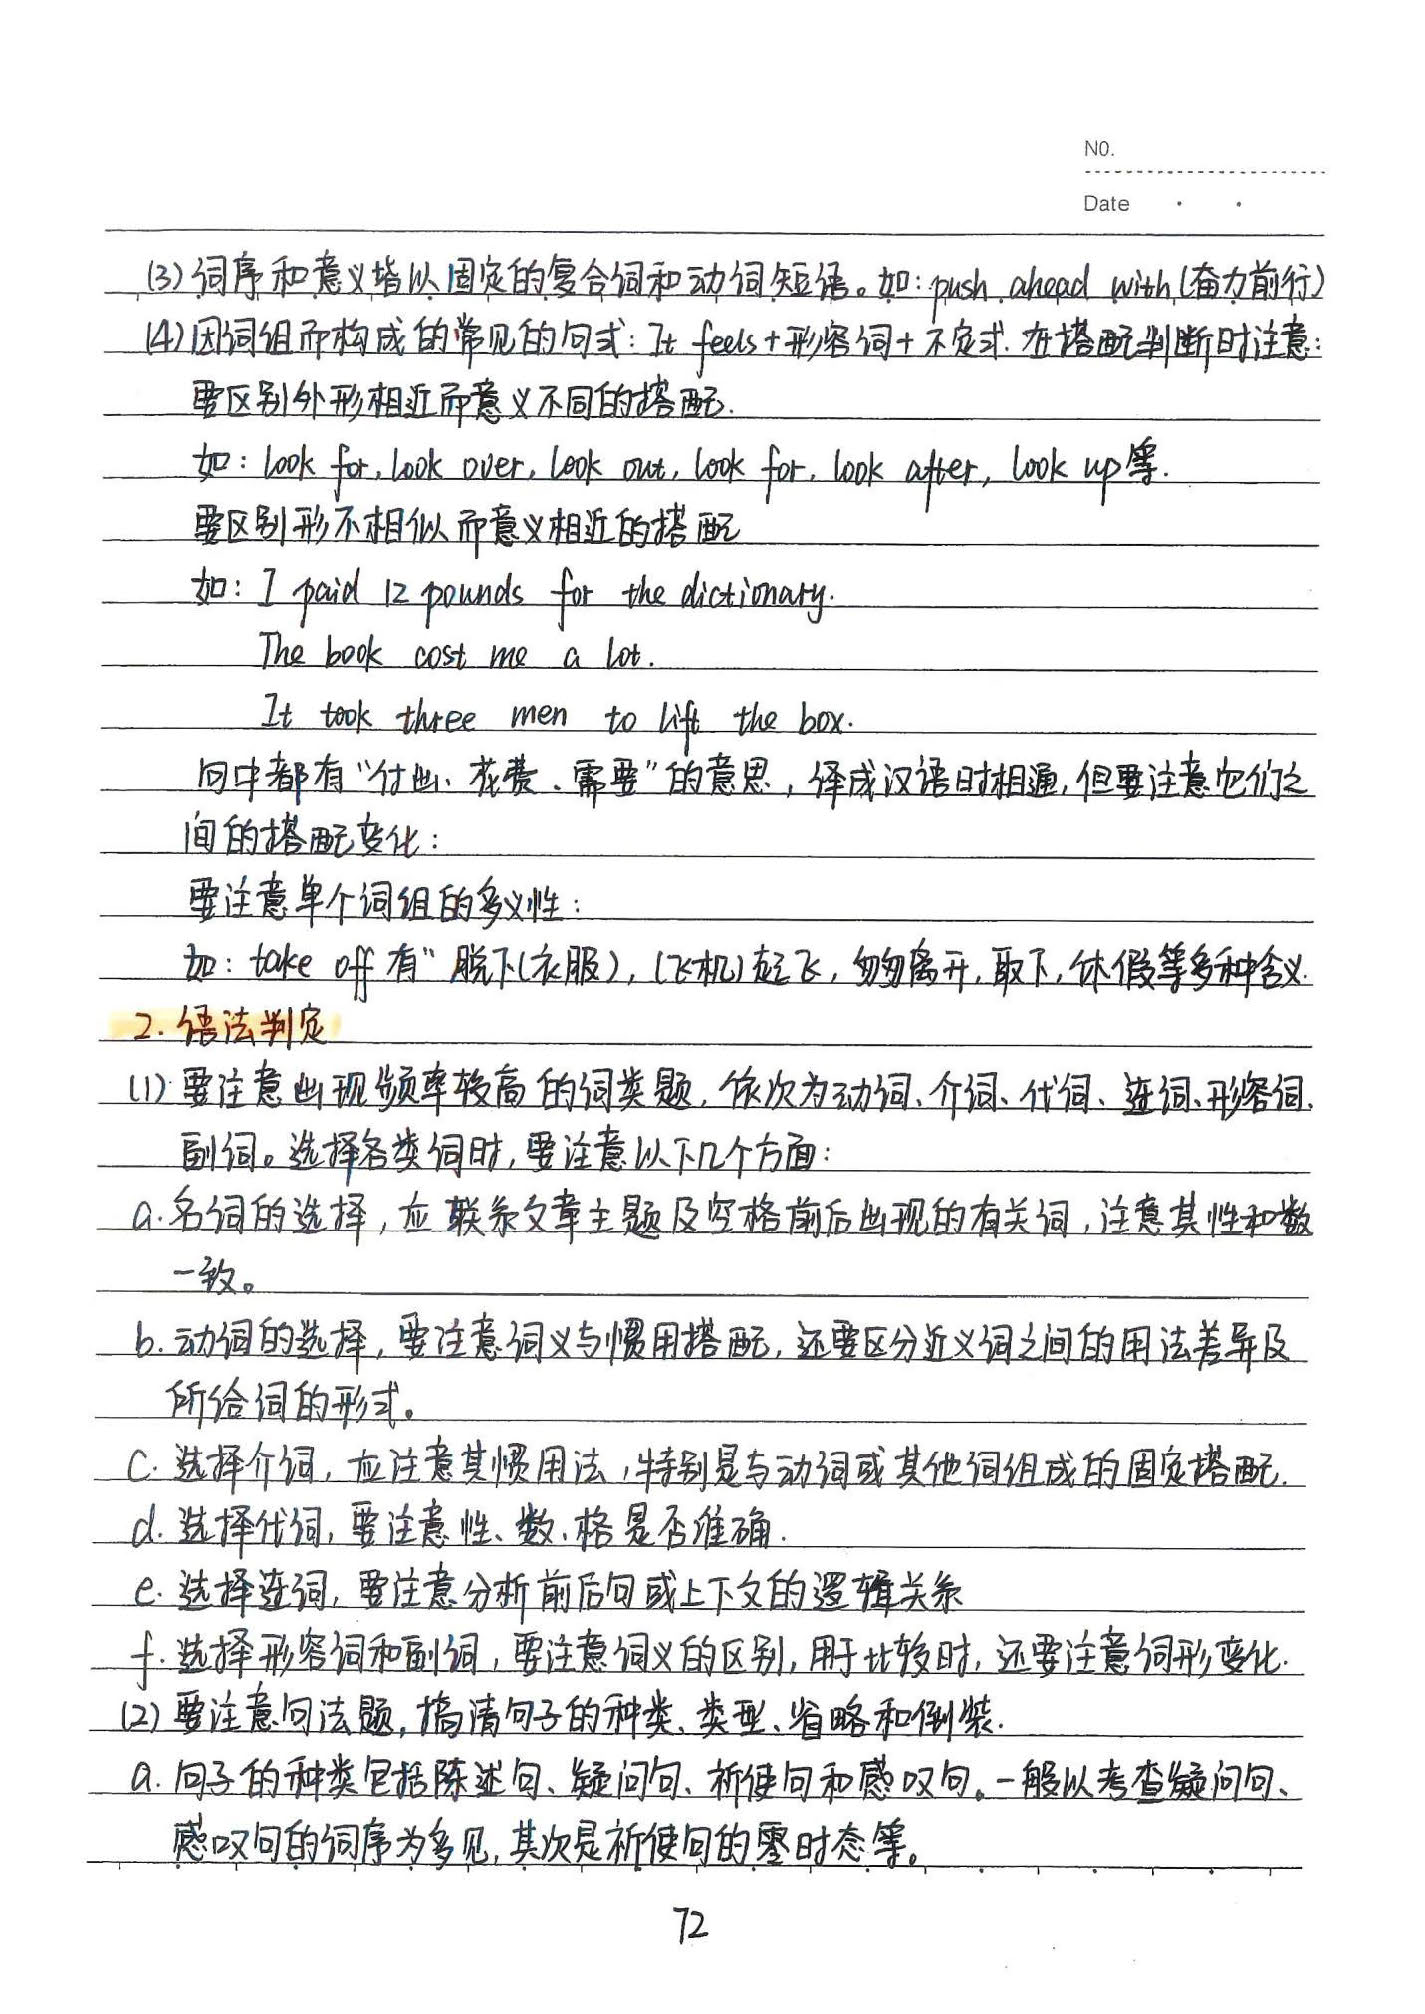 NO.
Date
(3)词序和意义皆以固定的复合词和动词短语。如:push ahead with(奋力前行)
(4)因词组而构成的常见的句式:It feels+形容词+不定式.在搭配判断时注意:
要区别外形相近而意义不同的搭配.
如:look for,look over,look out,look for,look after,look up等.
要区别形不相似而意义相近的搭配
如:I paid 12 pounds for the dictionary.
The book cost me a lot.
It took three men to lift the box.
句中都有“付出、花费、需要”的意思,译成汉语时相通,但要注意它们之
间的搭配变化:
要注意单个词组的多义性:
如:take off有“脱下(衣服),(飞机)起飞,匆匆离开,取下,休假等多种含义.
2.语法判定
(1)要注意出现频率较高的词类题,依次为动词、介词、代词、连词、形容词、
副词。选择各类词时,要注意以下几个方面:
a.名词的选择,应联系文章主题及空格前后出现的有关词,注意其性和数
一致。
b.动词的选择,要注意词义与惯用搭配,还要区分近义词之间的用法差异及
所给词的形式。
c.选择介词,应注意其惯用法,特别是与动词或其他词组成的固定搭配.
d.选择代词,要注意性、数、格是否准确.
e.选择连词,要注意分析前后句或上下文的逻辑关系
f.选择形容词和副词,要注意词义的区别,用于比较时,还要注意词形变化.
(2)要注意句法题,搞清句子的种类、类型、省略和倒装.
a.句子的种类包括陈述句、疑问句、祈使句和感叹句。一般以考查疑问句、
感叹句的词序为多见,其次是祈使句的零时态等。
72